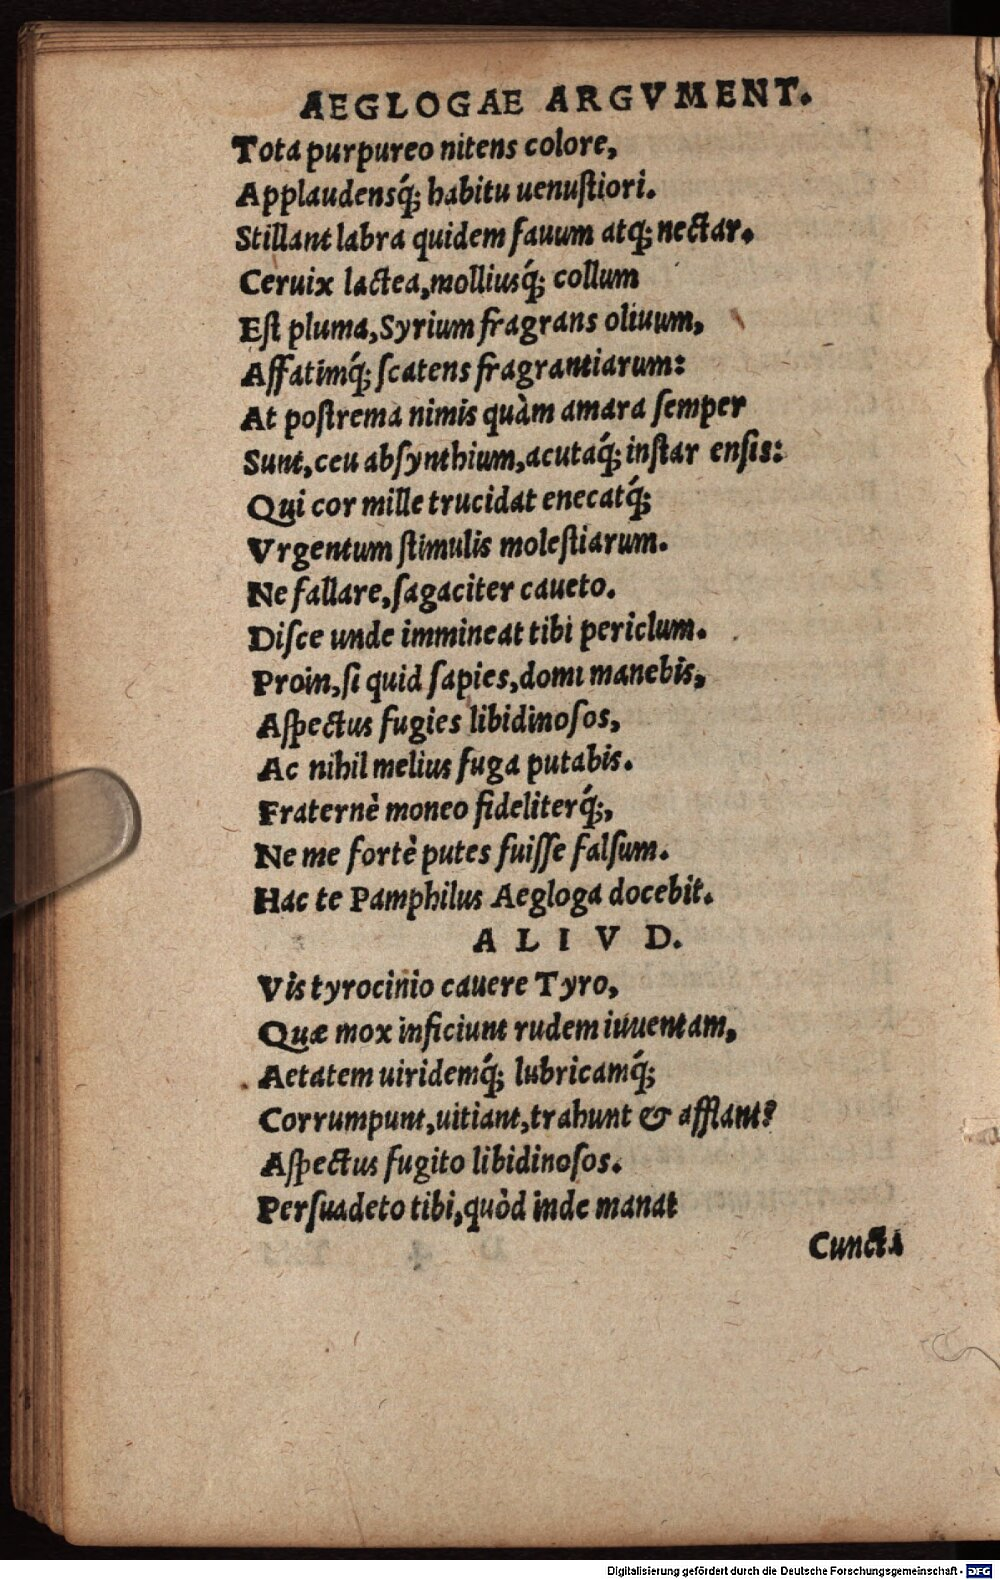 AEGLOGAE ARGVMENT.
Tota purpureo nitens colore,
Applaudensq́; habitu uenuſtiori.
Stillant labra quidem fauum atq; nectar.
Ceruix lactea, molliusq́; collum
Eſt pluma, Syrium fragrans oliuum,
Affatimq́; ſcatens fragrantiarum:
At poſtrema nimis quàm amara ſemper
Sunt, ceu abſynthium, acutaq́; inſtar enſis:
Qui cor mille trucidat enecatq́;
Vrgentum ſtimulis moleſtiarum.
Ne fallare, ſagaciter caueto.
Diſce unde immineat tibi periclum.
Proin, ſi quid ſapies, domi manebis,
Aſpectus fugies libidinoſos,
Ac nihil melius fuga putabis.
Fraternè moneo fideliterq́;,
Ne me fortè putes fuiſſe falſum.
Hac te Pamphilus Aegloga docebit.
A L I V D.
Vis tyrocinio cauere Tyro,
Quæ mox inficiunt rudem iuuentam,
Aetatem uiridemq́; lubricamq́;
Corrumpunt, uitiant, trahunt & afflant?
Aſpectus fugito libidinoſos.
Perſuadeto tibi, quòd inde manat
Cuncta
Digitalisierung gefördert durch die Deutsche Forschungsgemeinschaft - DFG